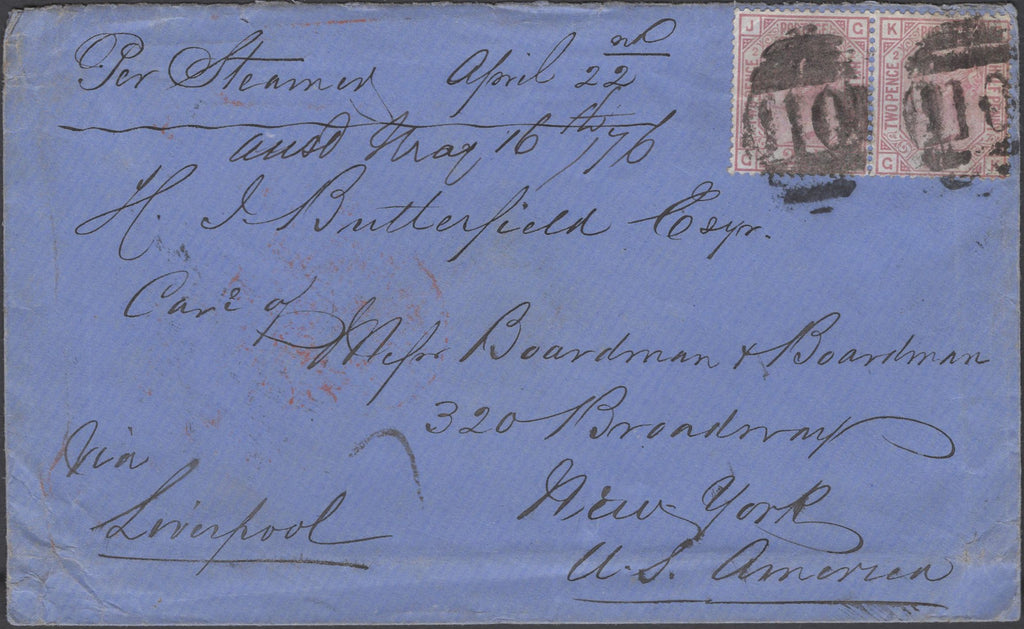 Per Steamer April 22nd
ansd May 16th /76
H. I. Butterfield Esqr.
Care of
Messrs Boardman & Boardman
320 Broadway
New York
U.S. America
Via
Liverpool
J G K
TWO PENCE
110 110
G G